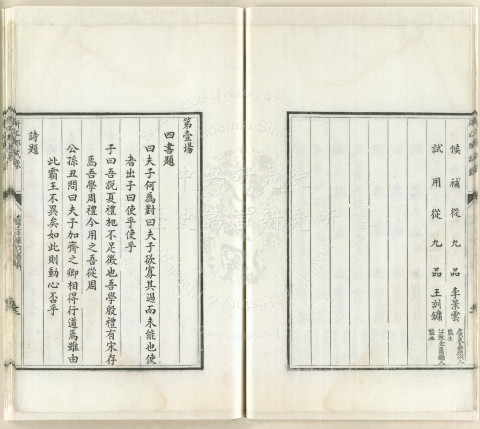 候補從九品 李景雲
試用從九品 王訓鏞
第壹場
四書題
曰夫子何為對曰夫子欲寡其過而未能也使
者出子曰使乎使乎
子曰吾說夏禮杞不足徵也吾學殷禮有宋存
焉吾學周禮今用之吾從周
公孫丑問曰夫子加齊之卿相得行道焉雖由
此霸王不異矣如此則動心否乎
詩題